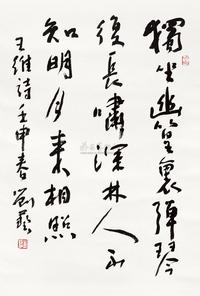 獨坐幽篁裏彈琴
復長嘯深林人不
知明月来相照
王維詩壬申春劉藝